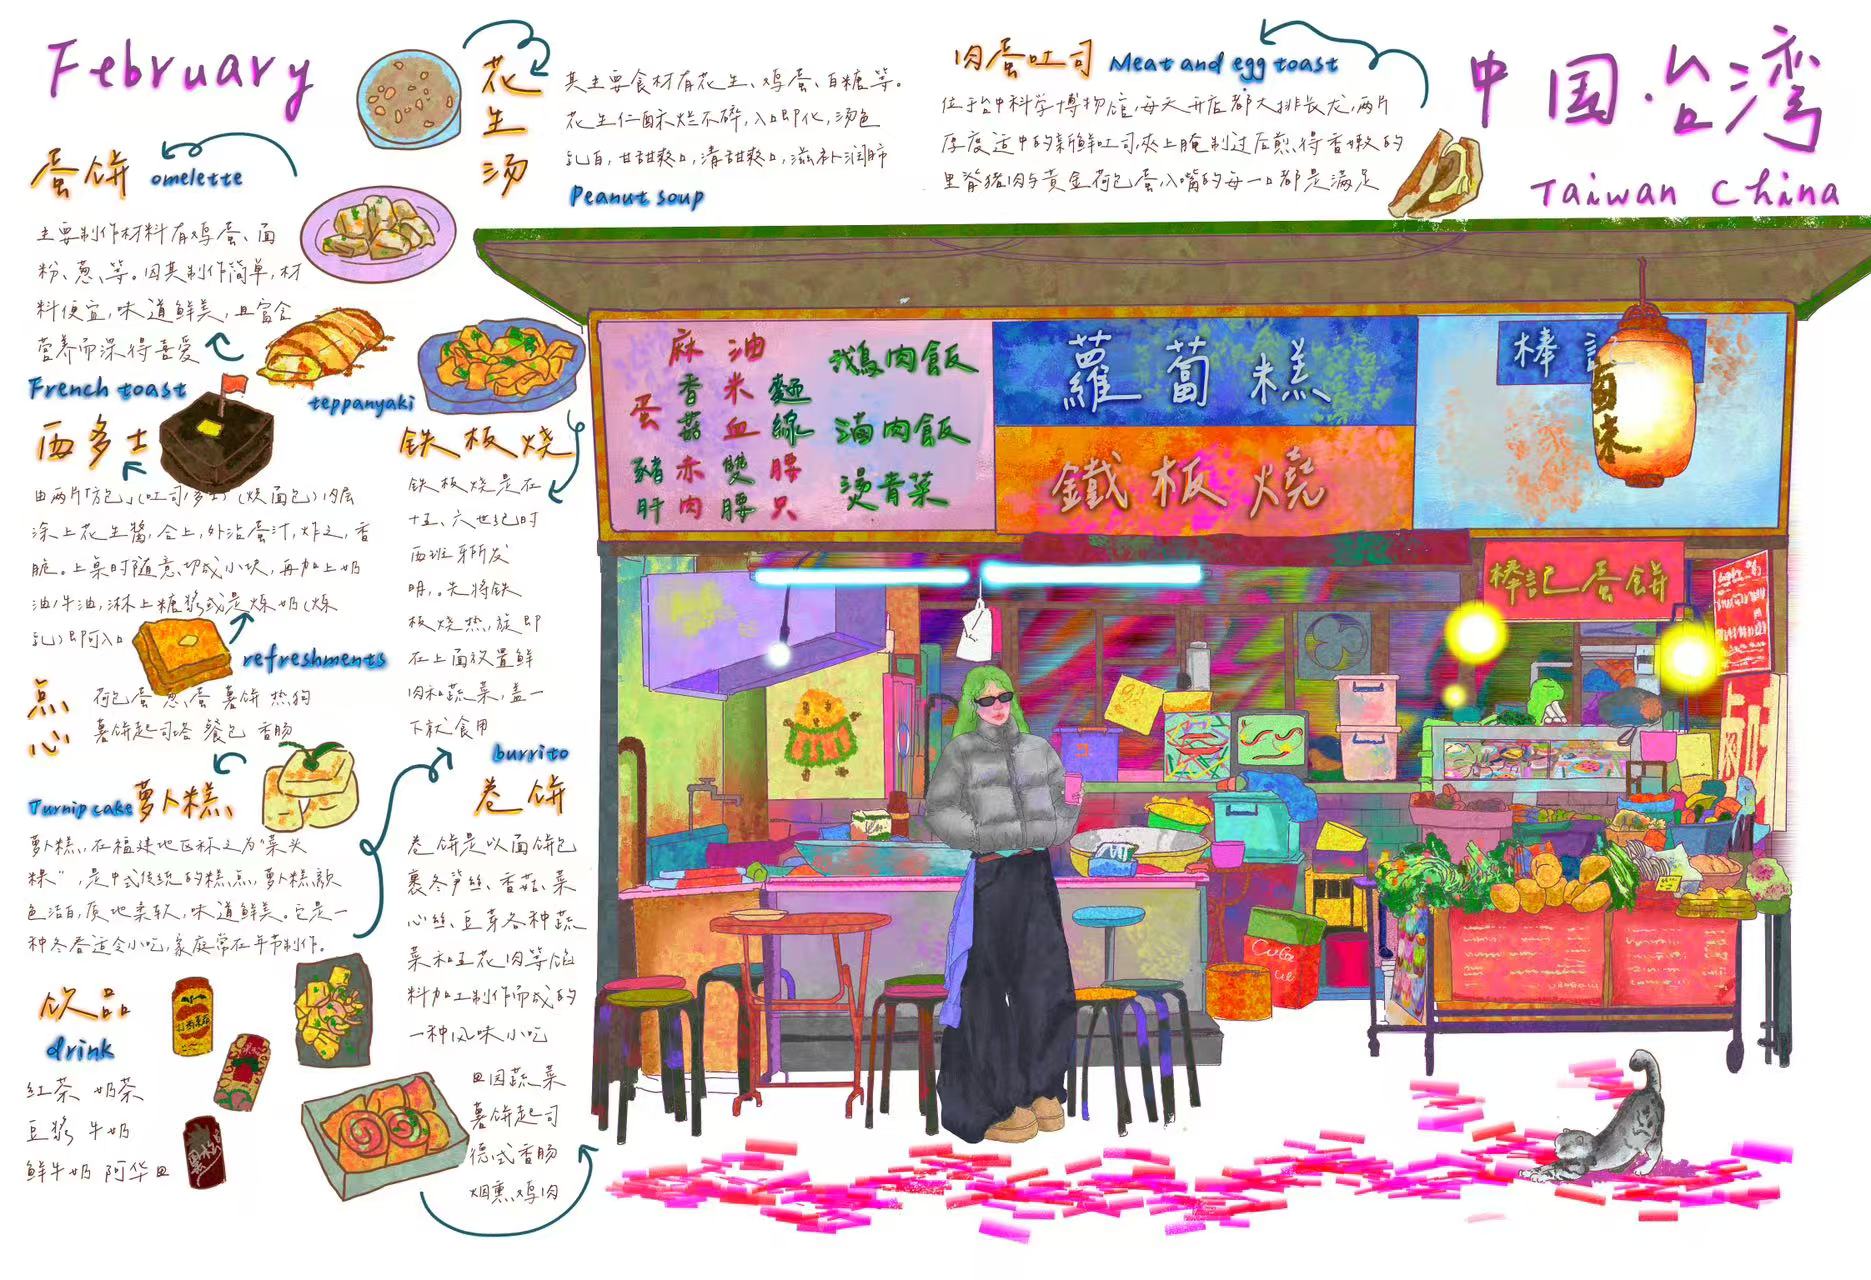 February
花生汤
其主要食材有花生、鸡蛋、白糖等。
花生仁酥烂不碎,入口即化,汤色
乳白,甘甜爽口,清甜爽口,滋补润肺
Peanut soup
肉蛋吐司 Meat and egg toast
位于台中科学博物馆,每天开店都大排长龙,两片
厚度适中的新鲜吐司夹上腌制过后煎得香嫩的
里脊猪肉与黄金荷包蛋入嘴的每一口都是满足
中国·台湾
Taiwan China
蛋饼 omelette
主要制作材料有鸡蛋、面
粉、葱、等。因其制作简单,材
料便宜,味道鲜美,且富含
营养而深得喜爱
French toast
西多士
由两片「方包」(吐司/多士)(烘面包),内层
涂上花生酱,合上,外沾蛋汁,炸之,香
脆。上桌时随意切成小块,再加上奶
油/牛油,淋上糖浆或是炼奶(炼
乳)即可入口
refreshments
点心
荷包蛋 葱蛋 薯饼 热狗
薯饼起司塔 餐包 香肠
Turnip cake 萝卜糕
萝卜糕,在福建地区称之为“菜头
粿”,是中式传统的糕点,萝卜糕颜
色洁白,质地柔软,味道鲜美。它是一
种冬春适令小吃,家庭常在年节制作。
饮品
drink
红茶 奶茶
豆浆 牛奶
鲜牛奶 阿华田
teppanyaki
铁板烧
铁板烧是在
十五、六世纪时
西班牙所发
明,。先将铁
板烧热,旋即
在上面放置鲜
肉和蔬菜,盖一
下就食用
burrito
卷饼
卷饼是以面饼包
裹冬笋丝、香菇、菜
心丝、豆芽各种蔬
菜和五花肉等馅
料加工制作而成的
一种风味小吃
田园蔬菜
薯饼起司
德式香肠
烟熏鸡肉
麻油
香菇
米血
麵線
蛋
豬肝
赤肉
雙腰
腰只
鵝肉飯
滷肉飯
燙青菜
蘿蔔糕
鐵板燒
棒記
棒記蛋餅
Coca